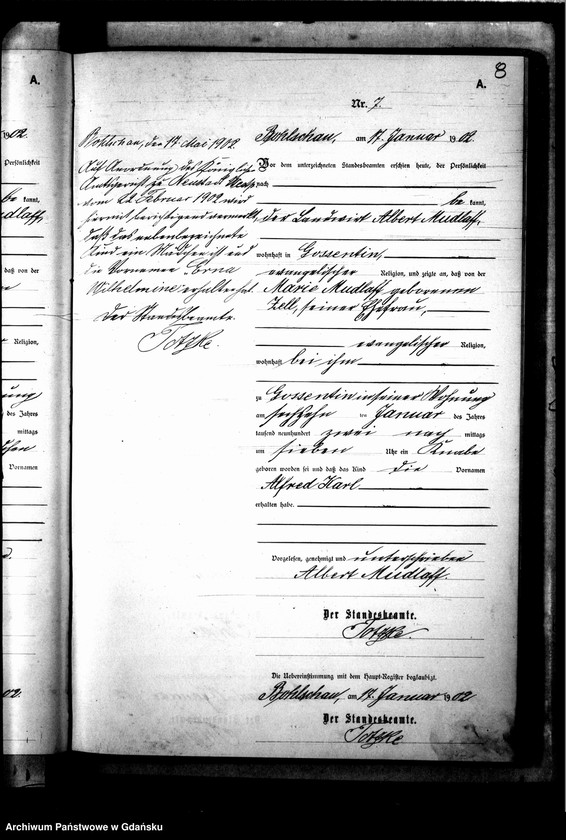 A.
8
A.
Nr. 7.
Bohlschau, am 17. Januar 1902.
Vor dem unterzeichneten Standesbeamten erschien heute, der Persönlichkeit
nach
be kannt,
der Landwirt Albert Mudlaff,
wohnhaft in Gossentin,
evangelischer Religion, und zeigte an, daß von der
Marie Mudlaff geborenen
Zell, seiner Ehefrau,
evangelischer Religion,
wohnhaft bei ihm
zu Gossentin in seiner Wohnung
am sechzehn ten Januar des Jahres
tausend neunhundert zwei nach mittags
um sieben Uhr ein Knabe
geboren worden sei und daß das Kind die Vornamen
Alfred Karl
erhalten habe.
Vorgelesen, genehmigt und unterschrieben
Albert Mudlaff.
Der Standesbeamte.
Totzke.
Die Uebereinstimmung mit dem Haupt-Register beglaubigt.
Bohlschau, am 17. Januar 1902
Der Standesbeamte.
Totzke
Bohlschau, den 17. Mai 1902.
Auf Anordnung des Königlichen
Amtsgericht zu Neustadt Westpr.
vom 22. Februar 1902 wird
hiermit berichtigend vermerkt,
daß das nebenbezeichnete
Kind ein Mädchen ist und
die Vornamen Erna
Wilhelmine erhalten hat.
Der Standesbeamte.
Totzke.
1902.
Persönlichkeit
be kannt,
Mudlaff,
daß von der
Religion,
des Jahres
mittags
Vornamen
02.
Archiwum Państwowe w Gdańsku